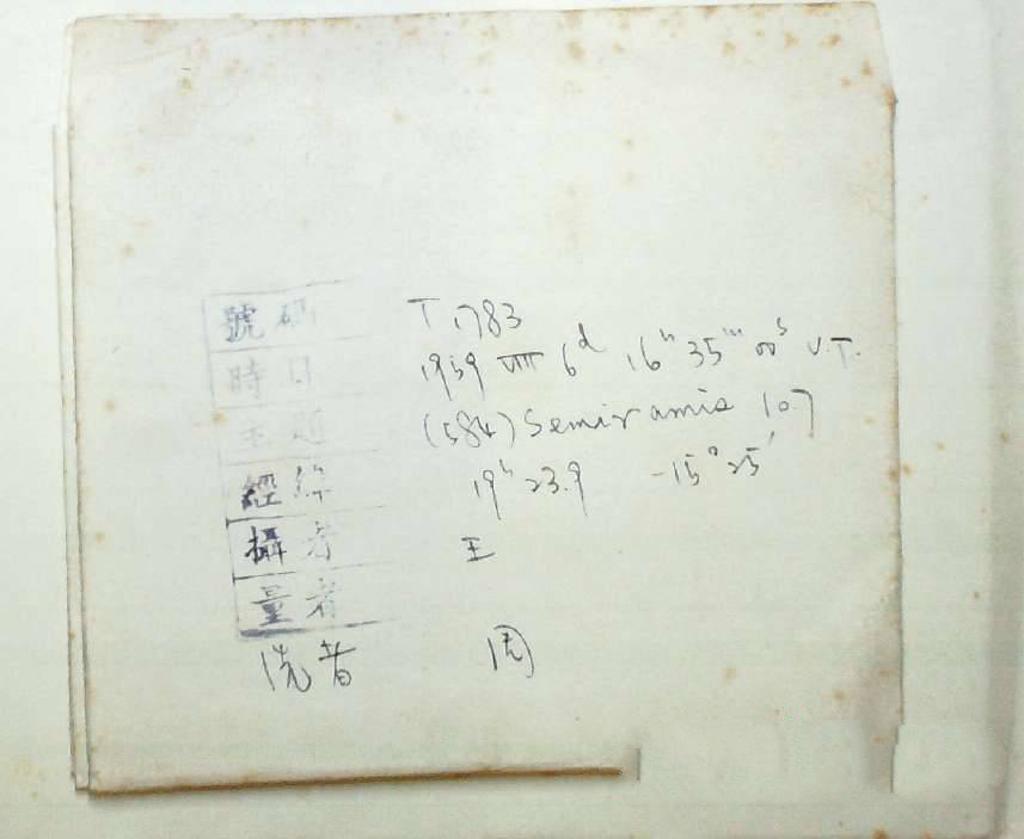 號碼 T 1783
時日 1959 VIII 6d 16h 35m 00s U.T.
主題 (584) Semiramis 107
經緯 19h 23.9 -15° 25'
攝者 王
量者
洗者 周